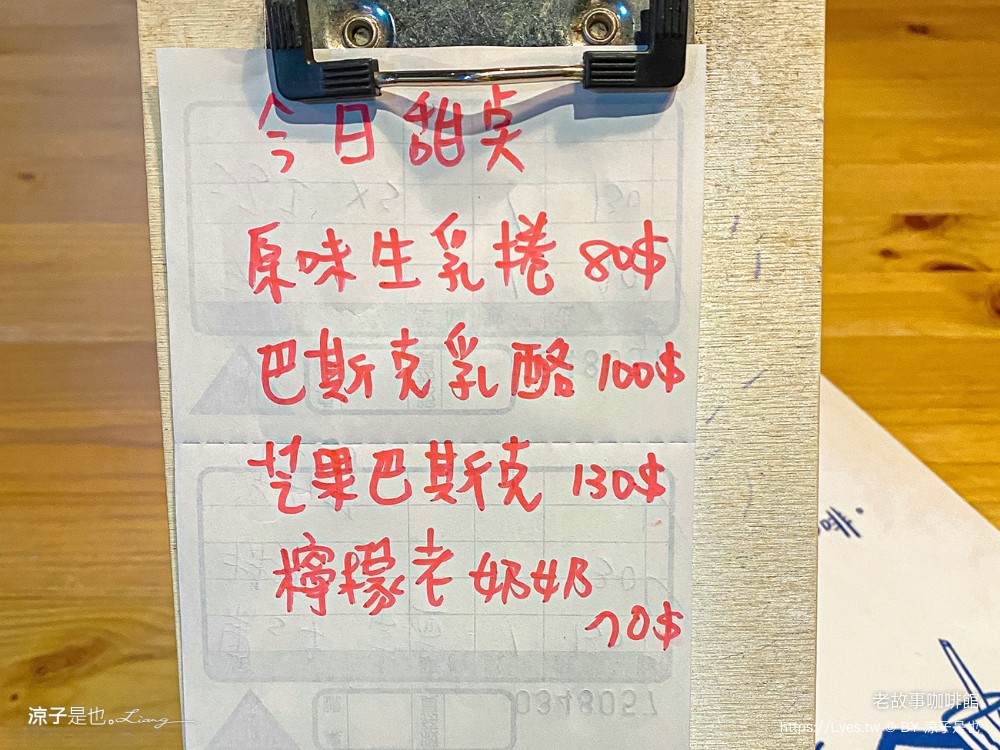 今日甜点
原味生乳捲 80$
巴斯克乳酪 100$
芒果巴斯克 130$
檸檬老奶奶
70$
0348057
涼子是也。Liang
老故事咖啡館
https://Lyes.tw © BY 涼子是也